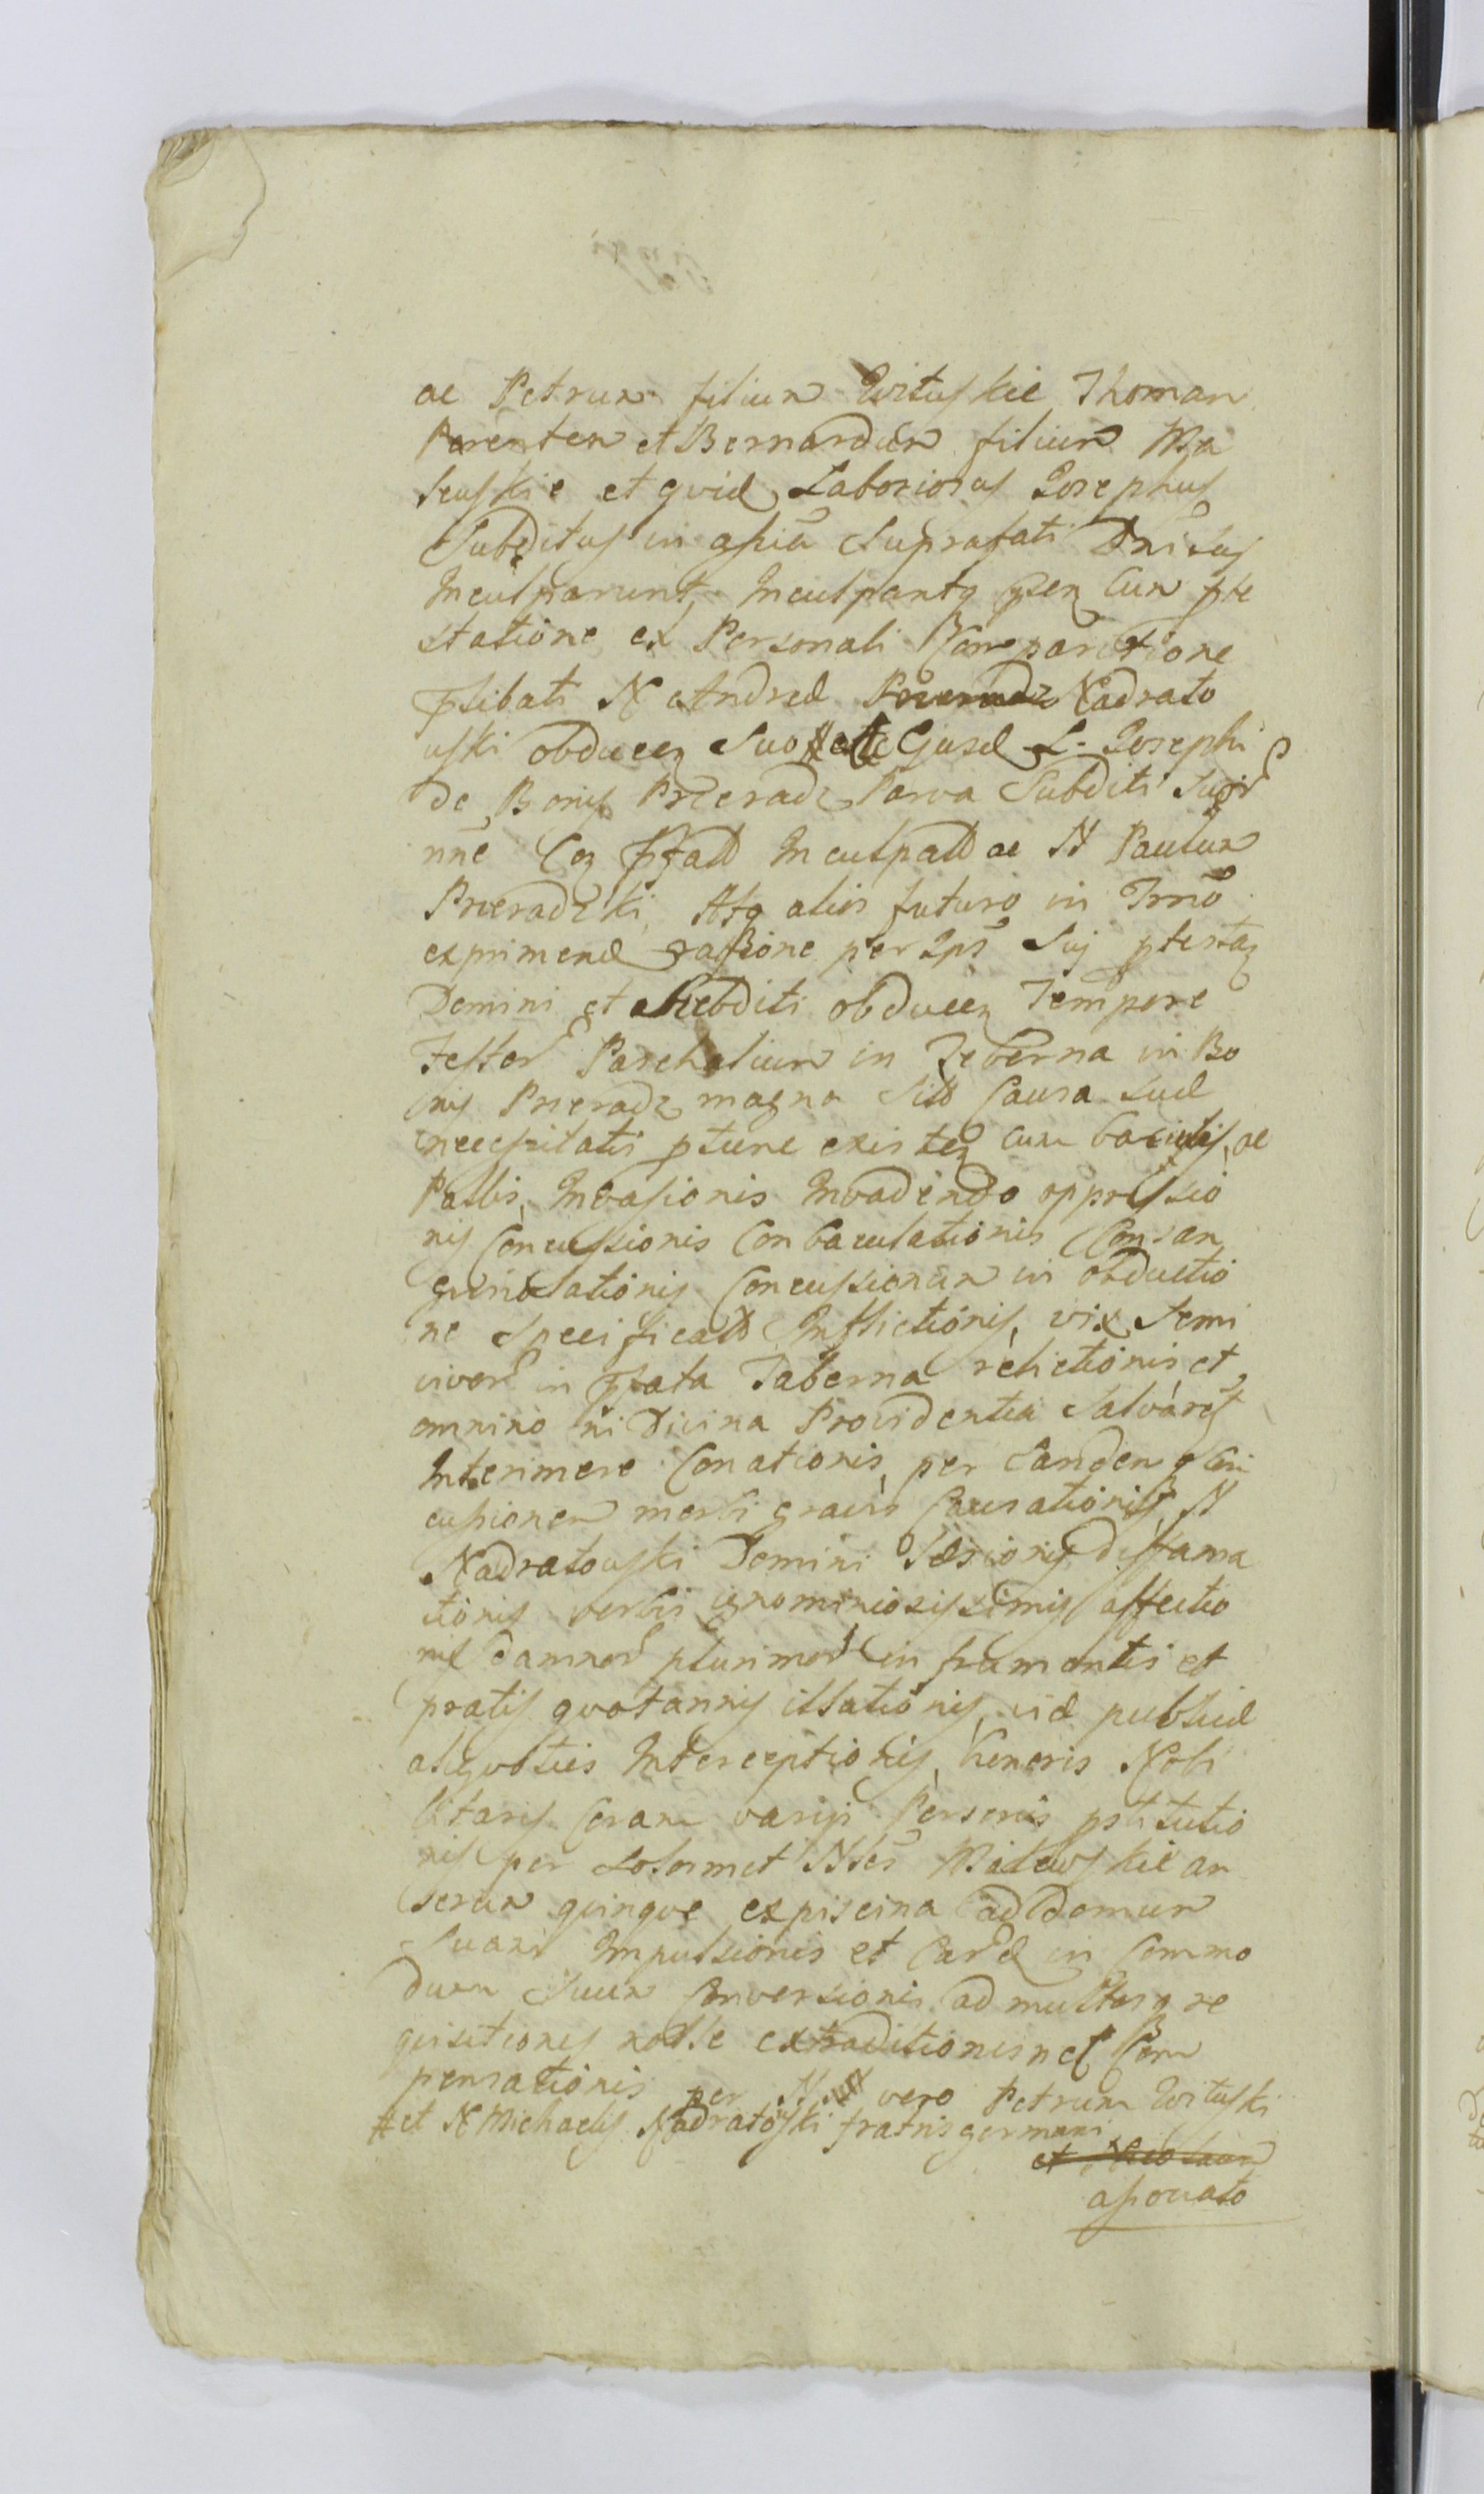 ac Petrum filium Wituskie Thomam
Parentem et Bernardum filium Ma
leuskie et quid Laboriosus Josephus
Subditus in assiã Suprafati Dni sui
Inculparunt, Inculpantq psen cum pte
statione ex Personali Comparitione
pslibati N Andreæ Nadrato
uski obducen suo Gusæ L. Josephi
de Bonis Prieradz Parva Subditi Suor
nne Coz ppfatt Inculpatt ac N Paulum
Prieradzki, Atq alias futuro in Tmo
exprimend ratione per Ips Sui ptestaz
Domini et Subditi obducen Tempore
Festor Paschalium in Taberna in Bo
nis Prieradz magna Sitt Causa suæ
necessitatis ptunc existen cum baculis, ac
Pallis, Invasionis Invadendo oppressio
nis Concussionis Conbaculationis Consan
guinolationis Concussionum in obductio
ne Specificatt Inflictionis, vix Semi
vivor in ppfata Taberna relictionis, et
omnino ni Divina Providentia Salvaret
Interimere Conationis, per eandem Con
cussionem morbi gravis Causationis, N
Nadratouski Domini Læsionis diffama
tionis verbis ignominiosissimis affectio
nis damnor plurimor in frumentis et
pratis quotannis illationis, viæ publicæ
aliquoties Interceptionis, honoris Nobi
litaris Coram variis Personis pstitutio
nis per Solosmet Nles Malewskie an
serum quinque ex piscina ad domum
Suam Impulsionis et Card in Commo
dum Suum Conversionis ad multasq re
quisitiones nolle extraditionis nec Com
pensationis per N. vero Petrum Wituski
# et N Michaelis Nadratowski fratris germani
et
asportato